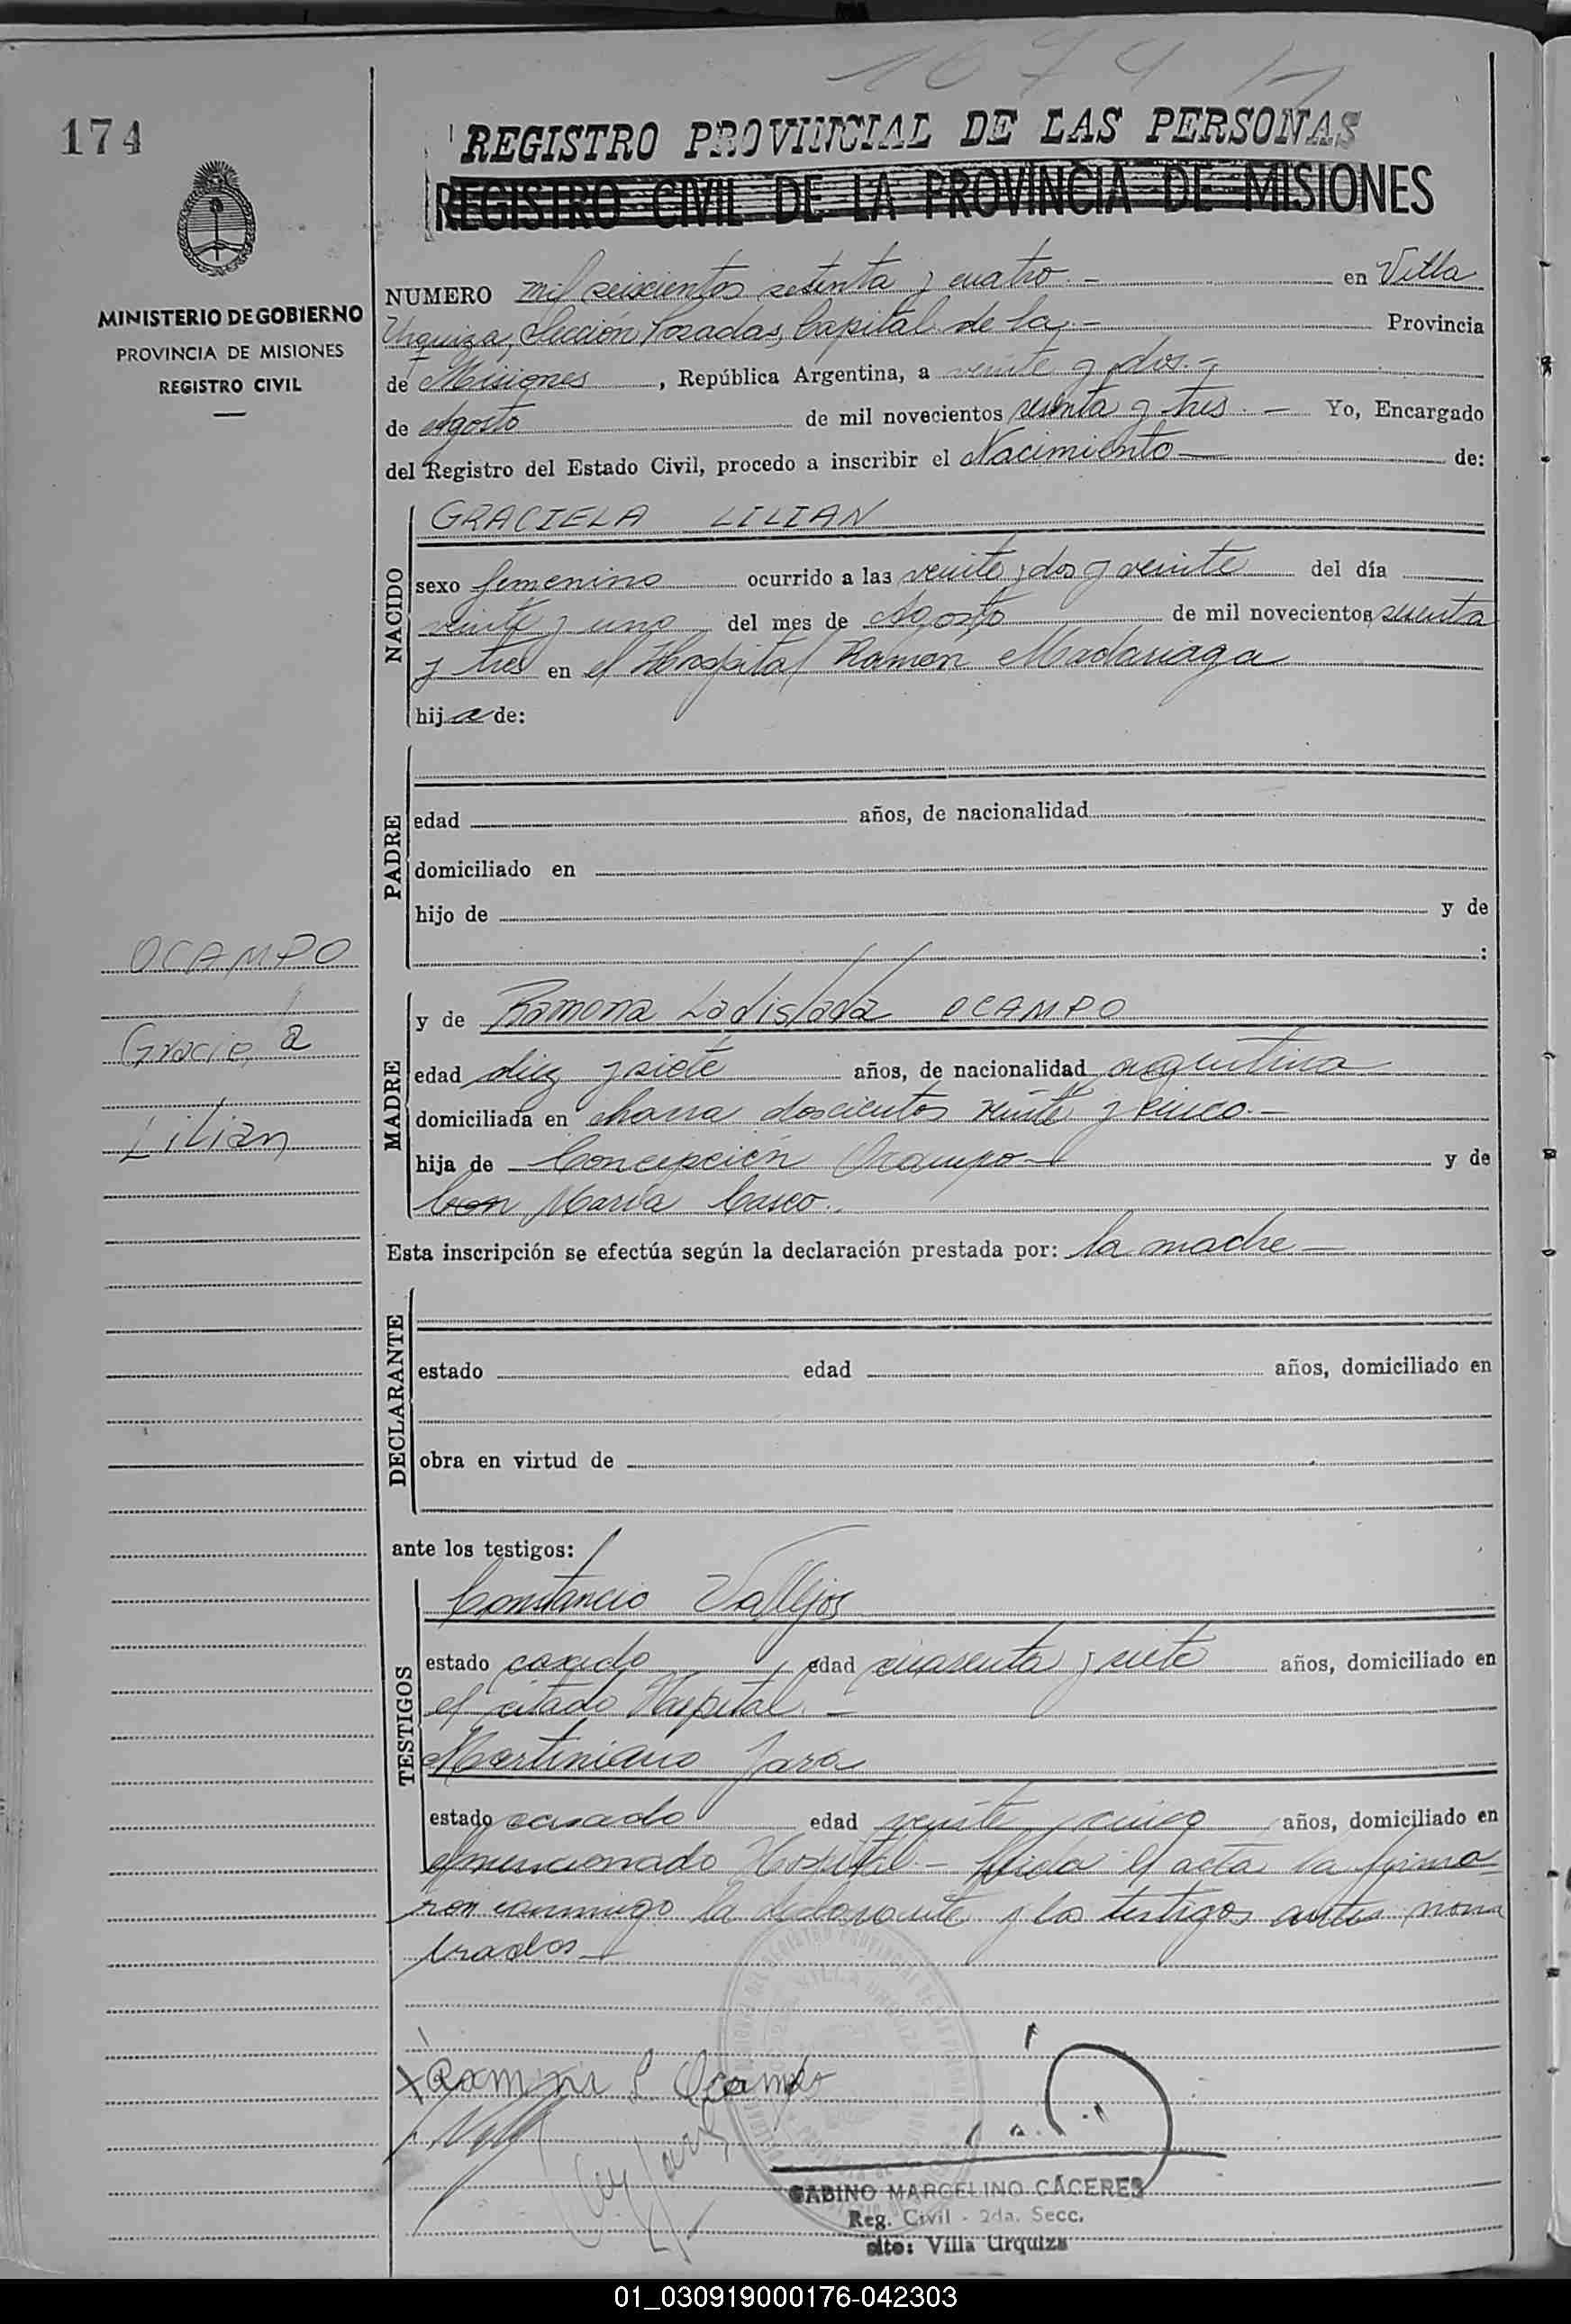 1674
174
REGISTRO PROVINCIAL DE LAS PERSONAS
REGISTRO CIVIL DE LA PROVINCIA DE MISIONES
MINISTERIO DE GOBIERNO
PROVINCIA DE MISIONES
REGISTRO CIVIL
NUMERO mil seiscientos setenta y cuatro.- en Villa
Urquiza, Sección Posadas, Capital de la.- Provincia
de Misiones, República Argentina, a veinte y dos.-
de Agosto de mil novecientos sesenta y tres.- Yo, Encargado
del Registro del Estado Civil, procedo a inscribir el Nacimiento de:
NACIDO
GRACIELA LILIAN
sexo femenino ocurrido a las veinte y dos y veinte del día
veinte y uno del mes de Agosto de mil novecientos sesenta
y tres en el Hospital Ramon Madariaga
hija de:
PADRE
edad años, de nacionalidad
domiciliado en
hijo de y de
:
OCAMPO
Graciela
Lilian
MADRE
y de Ramona Ladislada OCAMPO
edad diez y siete años, de nacionalidad argentina
domiciliada en chacra doscientos veinte y cinco.-
hija de Concepción Ocampo y de
Con María Casco.
Esta inscripción se efectúa según la declaración prestada por: la madre
DECLARANTE
estado edad años, domiciliado en
obra en virtud de
ante los testigos:
TESTIGOS
Constancio Vallejos
estado casado edad cuarenta y siete años, domiciliado en
el citado Hospital.-
Martiniano Jara
estado casado edad veinte y cinco años, domiciliado en
el mencionado Hospital.- leída el acta la firma-
ron conmigo la declarante y los testigos antes nom
brados
Ramona L Ocampo
GABINO MARCELINO CÁCERES
Reg. Civil - 2da. Secc.
sito: Villa Urquiza
01_030919000176-042303